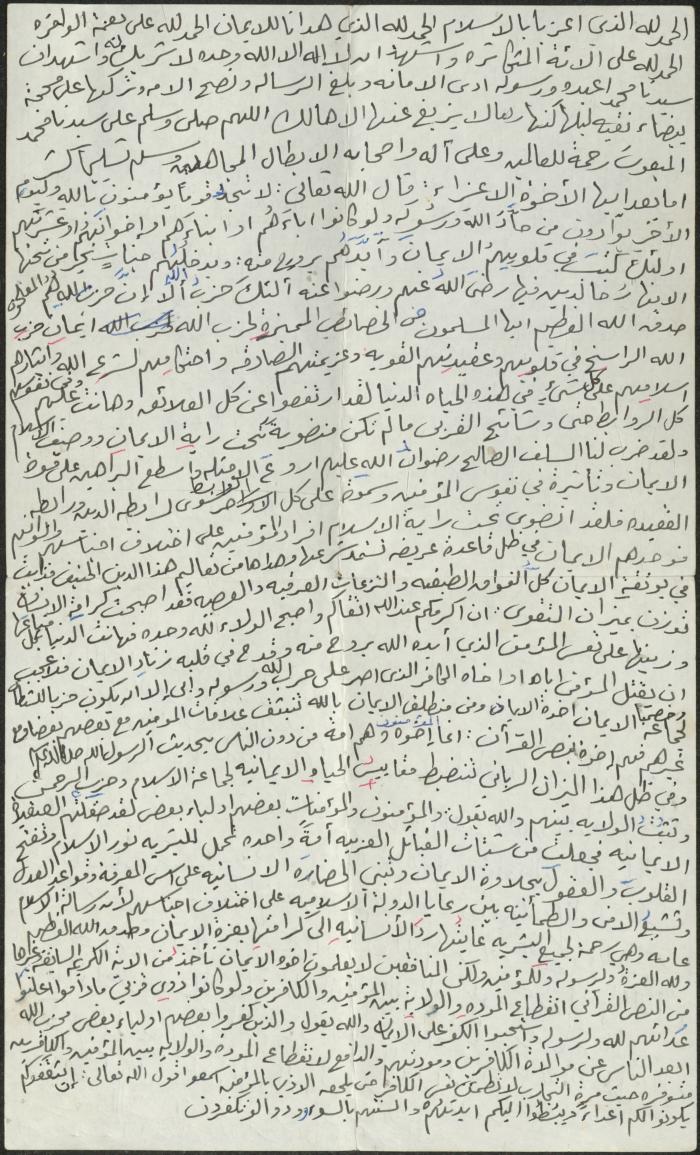 الحمد لله الذي اعزنا بالاسلام الحمد لله الذي هدانا للايمان الحمد لله على نعمة الولد
الحمد لله على الائة المتكاثره واشهد ان لا اله الا الله وحده لا شريك له واشهد ان
سيدنا محمدا عبده ورسوله ادى الامانه وبلغ الرساله ونصح الامه وتركها على محجة
بيضاء نقيه ليلها كنهارها لا يزيغ عنها الا هالك اللهم صلى وسلم على سيدنا محمد
المبعوث رحمة للعالمين وعلى آله واصحابه الابطال المجاهدين وسلم تسليما كثيرا
اما بعد ايها الأخوة الاعزاء: قال الله تعالى: لا تجد قوما يؤمنون بالله واليوم
الآخر يوآدون من حآدّ الله ورسوله ولو كانوا اباءهم او ابناءهم او اخوانهم او عشيرتهم
اولئك كتب في قلوبهم الايمان وأيدهم بروح منه: ويدخلهم جنات تجري من تحتها
الانهار خالدين فيها رضى الله عنهم ورضوا عنه آلئك حزب الله ألا إنّ حزب الله هم المفلحون
صدق الله العظيم ايها المسلمون من الخصائص المميزة لحزب الله ايمان حزب
الله الراسخ في قلوبهم وعقيدتهم القويه وعزيمتهم الصادقه واحتكامهم لشرع الله وايثارهم
اسلامهم على كل شيء في هذه الحياه الدنيا لقد ارتفعوا عن كل العلائق وهانت عليهم وفي نفوسهم
كل الروابط حتى وشائج القربى مالم تكن منضوية تحت راية الايمان وصف الاسلام
ولقد ضرب لنا السلف الصالح رضوان الله عليهم اروع الامثله واسطع البراهين على قوة
الايمان وتأثيرة في نفوس المؤمنين وسموة على كل الاواصر والروابط سوى رابطه الدين ورابطه
العقيده فلقد انضوى تحت راية الاسلام افراد المؤمنين على اختلاف اجناسهم
فوحدهم الايمان في ظل قاعدة عريضه تستمد شرعها وهداها من تعاليم هذا الدين الحنيف
في بوتقة الايمان كل الفوارق الطبقيه والنزعات العرقيه والعصبيه فقد اصبحت كرامة الانسان
توزن بميزان التقوى: ان اكرمكم عند الله اتقاكم واصبح الولاء لله وحده فهانت الدنيا بكل متاعها
وزينتها على نفس المؤمن الذي أيده الله بروح منه وقدح في قلبه زناد الايمان فلا عجب
ان يقتل المؤمن اباه او اخاه الكافر الذى اصر على حرب الله ورسوله وأبى إلا ان يكون حزبا للشيطان
الايمان اخوة الايمان ومن منطلق الايمان بالله تنبثق علاقات المؤمنين مع بعضهم بعضا ومع
غيرهم فهم اخوة بنص القرآن: انما المؤمنون إخوة وهم امة من دون الناس بحديث الرسول صلى الله عليه وسلم
وفي ظل هذا الميزان الرباني تنضبط مقاييس الحياه الايمانيه لجماعة الاسلام وحزب الرحمن
وتثبت الولايه بينهم والله يقول: والمؤمنون والمؤمنات بعضهم اولياء بعض لقد صقلتهم العقيدة
الايمانيه فجعلت من شتات القبائل العربيه أمة واحده تحمل للبشريه نور الاسلام وتفتح
القلوب والعقول بحلاوة الايمان وتبني الحضارة الانسانيه على اسس المعرفة وقواعد العدل
وتشيع الامن والطمأنينه بين رعايا الدولة الاسلاميه على اختلاف اجناسهم لأن رسالة الاسلام
عامه وهي رحمة لجميع البشريه غايتها رد الأنسانيه الى كرامتها بعزة الايمان وصدق الله العظيم
ولله العزة ولرسوله وللمؤمنين ولكن المنافقين لا يعلمون اخوة الايمان تأخذ من الاية الكريمه السابقه
من النص القرآني انقطاع الموده والولاية بين المؤمنين والكافرين ولو كانوا ذوى قربى ماداموا اعلنوا
عدائهم لله ولرسوله واستحبوا الكفر على الايمان والله يقول والذين كفروا بعضهم اولياء بعض فحزب الله
ابعد الناس عن موالاة الكافرين ومودتهم والدافع لانقطاع الموده والولايه بين المؤمنين والكافرين
متوفره حيث التجارب لا تطمئن نفس الكافر حتى يلحقه الاذى بالمؤمن اسمعوا قول الله تعالى: إن يثقفوكم
يكونوا لكم اعداءً ويبسطوا اليكم ايديهم والسنتهم بالسوء وودوا لو تكفرون